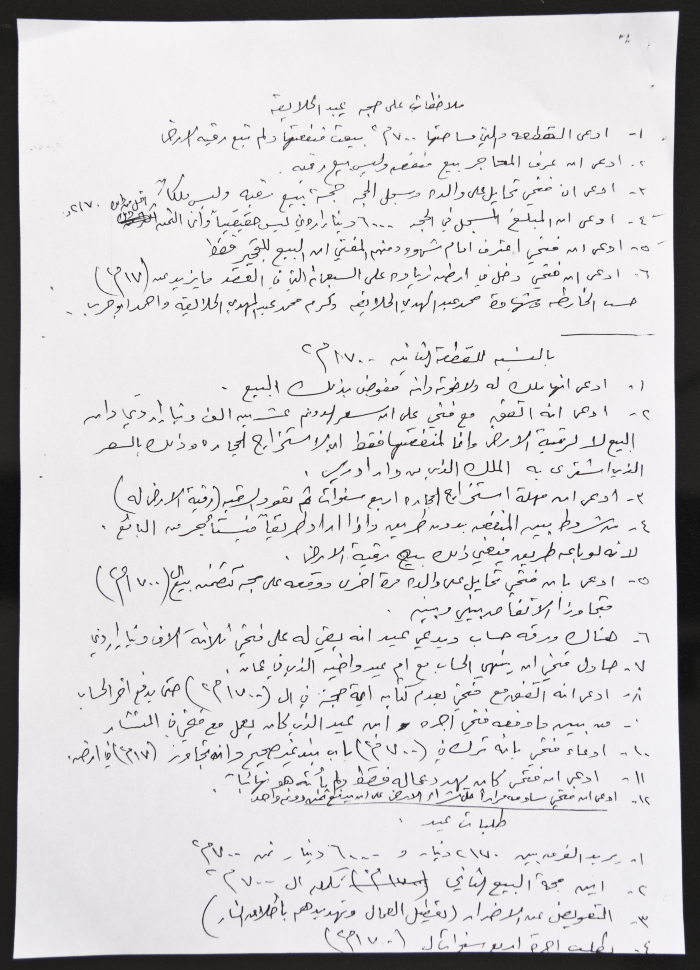 ملاحظات على حجه عيد الخلايقة
١- ادعى ان القطعه والتي مساحتها ٧٠٠ م٢ بيعت منفعتها ولم تبع رقبة الارض
٢- ادعى ان عرف المحاجر بيع منفعه وليس بيع رقبه .
٣- ادعى ان فتحي تحايل على والده وسجل الحجه حجة بيع رقبه وليس ملكاً
٤- ادعى ان المبلغ المسجل في الحجه ٦٠٠٠ دينار اردني ليس حقيقياً وأن الثمن ٢١٧٠
٥- ادعى ان فتحي اعترف امام شهود منهم المفتي ان البيع للحجر فقط
٦- ادعى ان فتحي دخل في ارضه زياده على السبعمائة التي في العقد ما يزيد عن (١٧ م٢)
حسب الخارطه وشهادة محمد عبد المهدي الخلايقه وكرم محمد عبد المهدي الخلايقة واحمد ابو حرب .
بالنسبه للقطعة الثانيه ١٧٠٠ م٢
١- ادعى انها ملك له ولاخوته وانه مفوض بذلك البيع .
٢- ادعى انه اتفق مع فتحي على ان سعر الدونم عشرين الف دينار اردني وان
البيع لا لرقبة الارض وانما لمنفعتها فقط اي لاستخراج الحجاره وذلك بالسعر
الذي اشترى به الملك الذي من دار ادريس .
٣- ادعى ان مهلة استخراج الحجاره اربع سنوات ثم تعود الرقبه (رقبة الارض له)
٤- من شروط بيع المنفعه بدون طريق واذا اراد طريقاً فستأجر من البائع .
لانه لو باعه طريق فيعني ذلك بيع رقبة الارض .
٥- ادعى بان فتحي تحايل على والده مرة اخرى ووقعه على حجه تتضمن بيع ال (١٧٠٠ م٢)
متجاوزا الاتفاق بيني وبينه .
٦- هناك ورقه حساب ويدعي عيد انه بقي له على فتحي ثلاثة الاف دينار اردني
٧- حاول فتحي ان ينهي الحساب مع ام عيد واخيه الذي في عمان .
٨- ادعى انه اتفق مع فتحي بعدم كتابه اية حجة في ال (١٧٠٠ م٢) حتى يدفع اخر الحساب
٩- من بين ما دفعه فتحي اجره ابن عيد الذي كان يعمل مع فتحي في المنشار
١٠- ادعاء فتحي بانه ترك في (٧٠٠ م٢) بانه بند غير صحيح وانه تجاوز (١٧ م٢) في ارضه .
١١- ادعى ان فتحي كان يهدد عماله فقط ولم يأته هو نهائياً .
١٢- ادعى ان فتحي ساومه مراراً على شراء الارض على ان يدفع ثمن دونم واحد
طلبات عيد .
١- يريد الفرق بين ٢١٧٠ دينار و ٦٠٠٠ دينار ثمن ٧٠٠ م٢
٢- اين حجة البيع الثاني تكملة ال ٧٠٠ م٢
٣- التعويض عن الاضرار (تعطيل العمال وتهديدهم باطلاق النار)
٤- يطلب اجرة اربع سنوات ال (١٧٠٠ م٢)